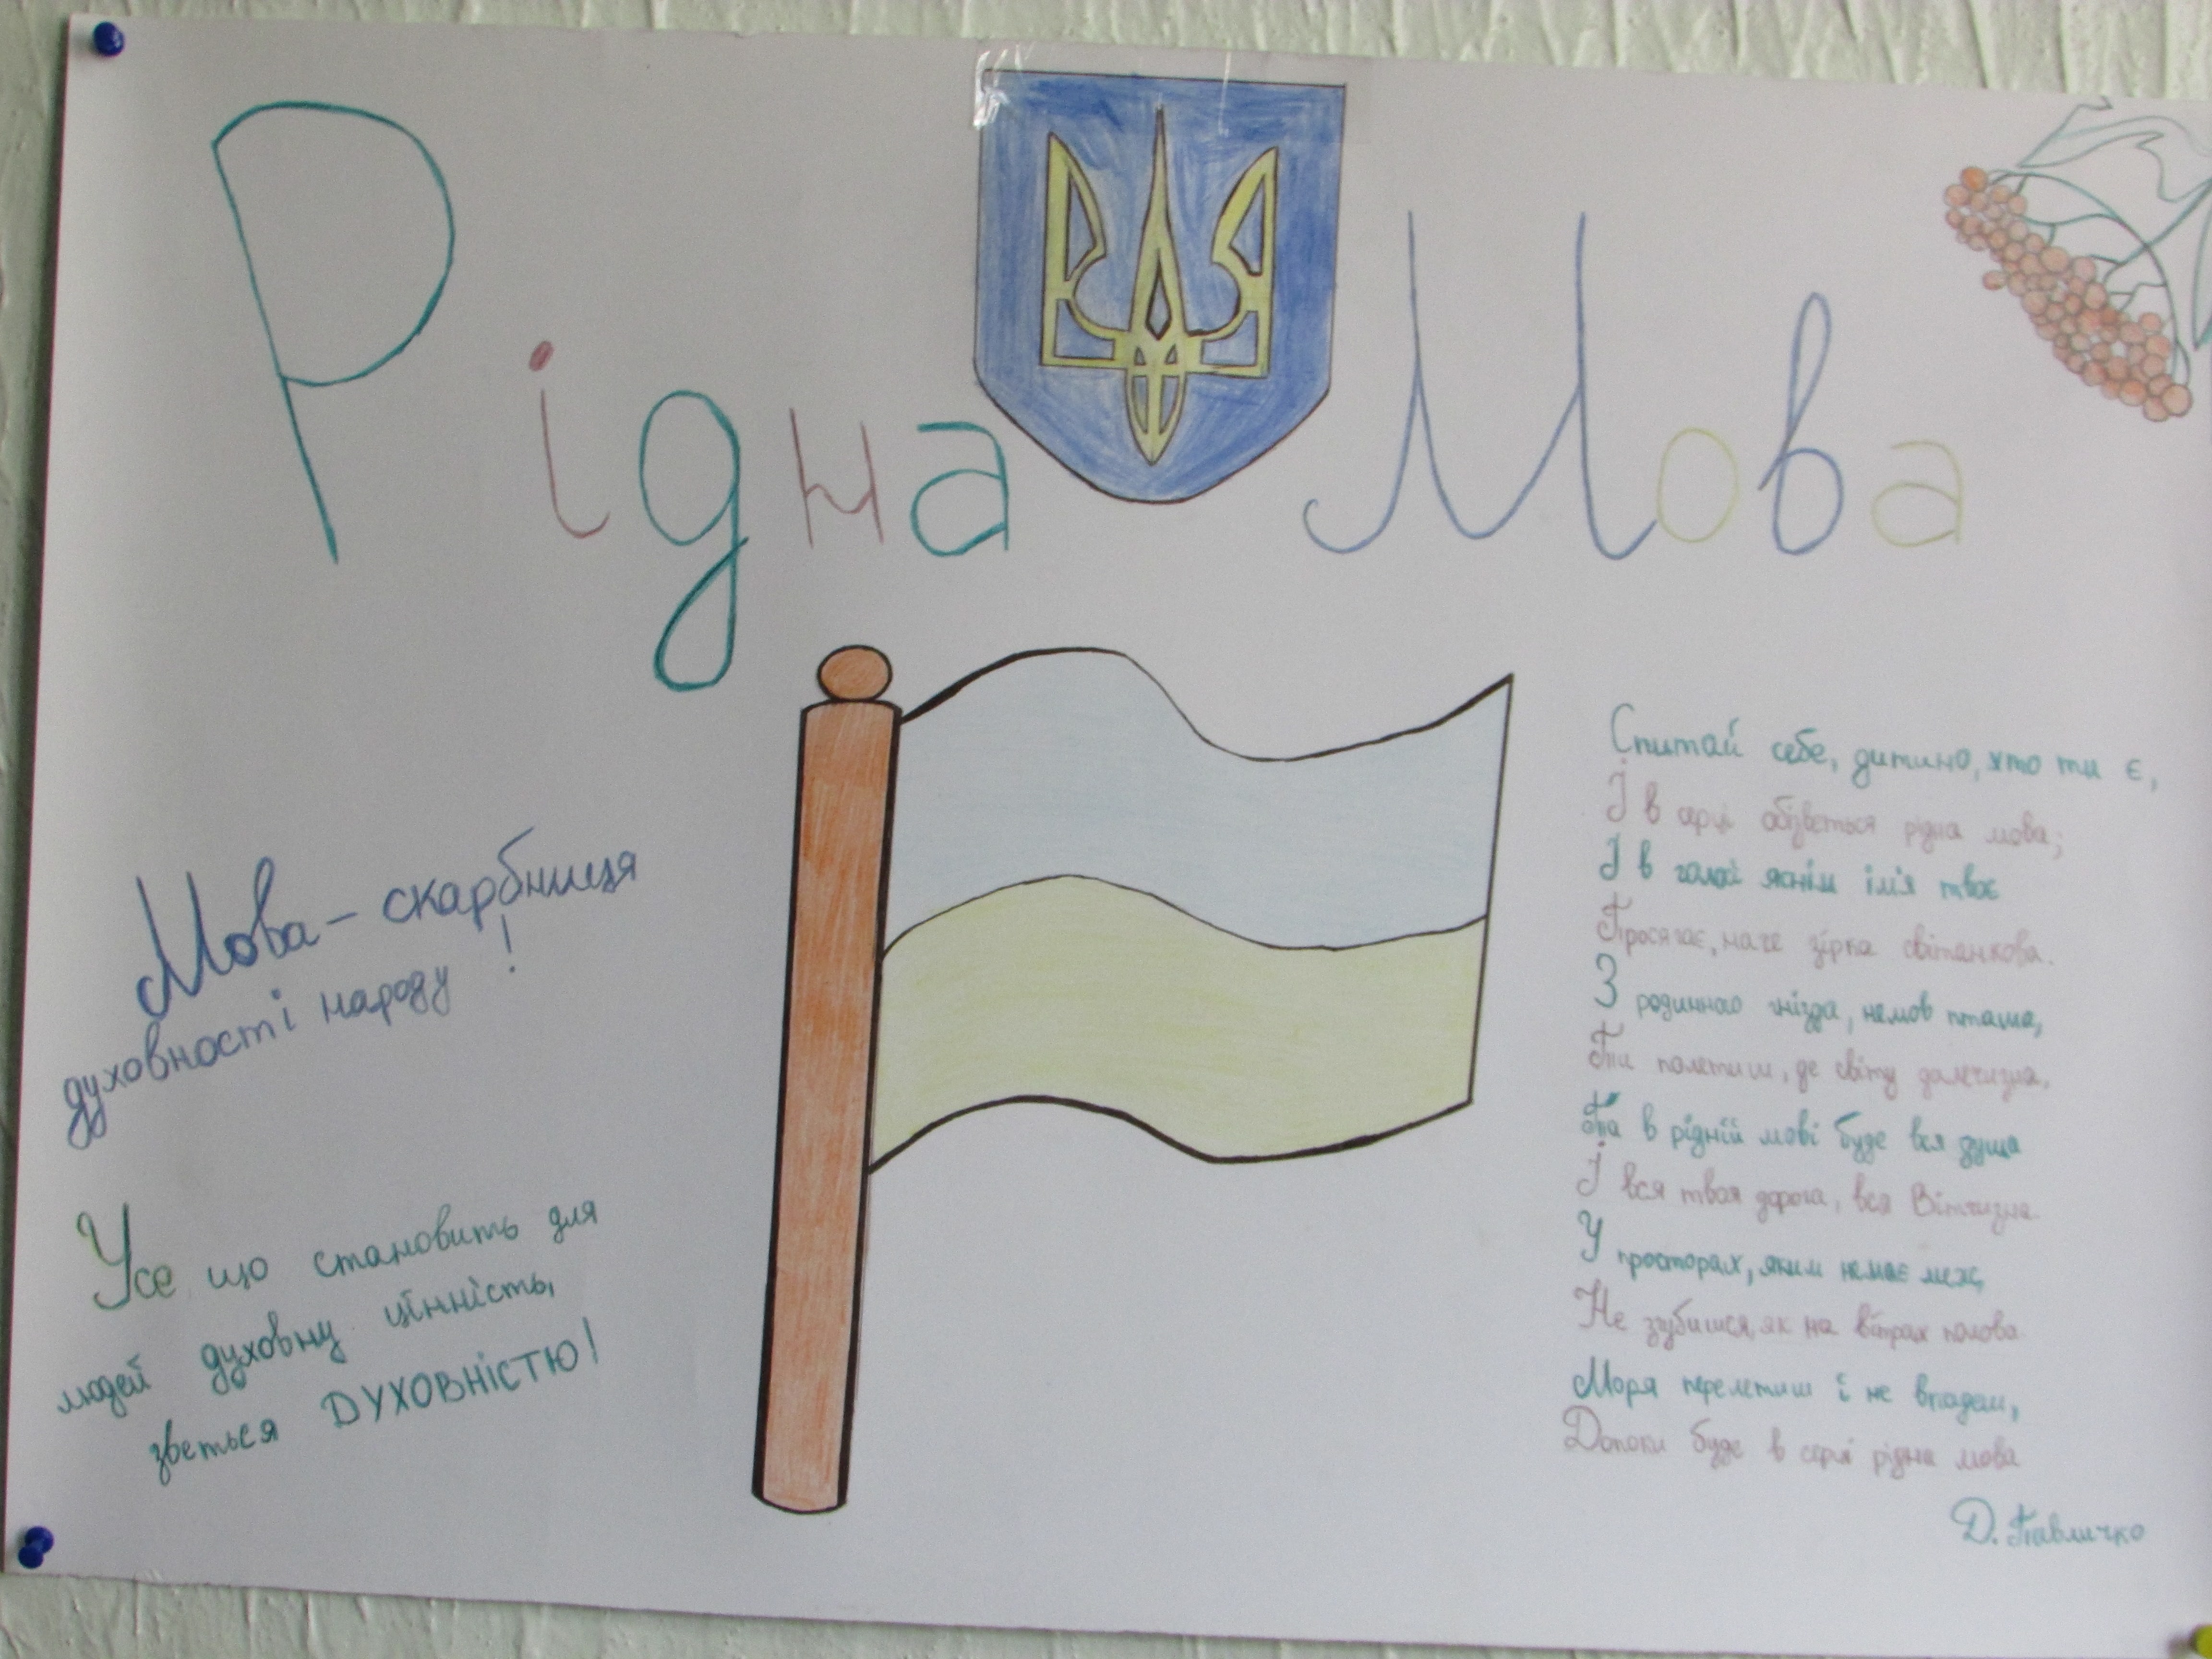 Рідна Мова
Мова - скарбниця
духовності народу !
Усе що становить для
людей духовну цінність,
зветься ДУХОВНІСТЮ!
Спитай себе, дитино, хто ти є,
І в серці обізветься рідна мова;
І в голосі яснім ім'я твоє
Просягає, наче зірка світанкова.
З родинного гнізда, немов пташа,
Ти полетиш, де світу далечизна,
Та в рідній мові буде вся душа
І вся твоя дорога, вся Вітчизна.
У просторах, яким немає меж,
Не згубишся, як на вітрах полова
Моря перелетиш і не впадеш,
Допоки буде в серці рідна мова
Д. Павличко